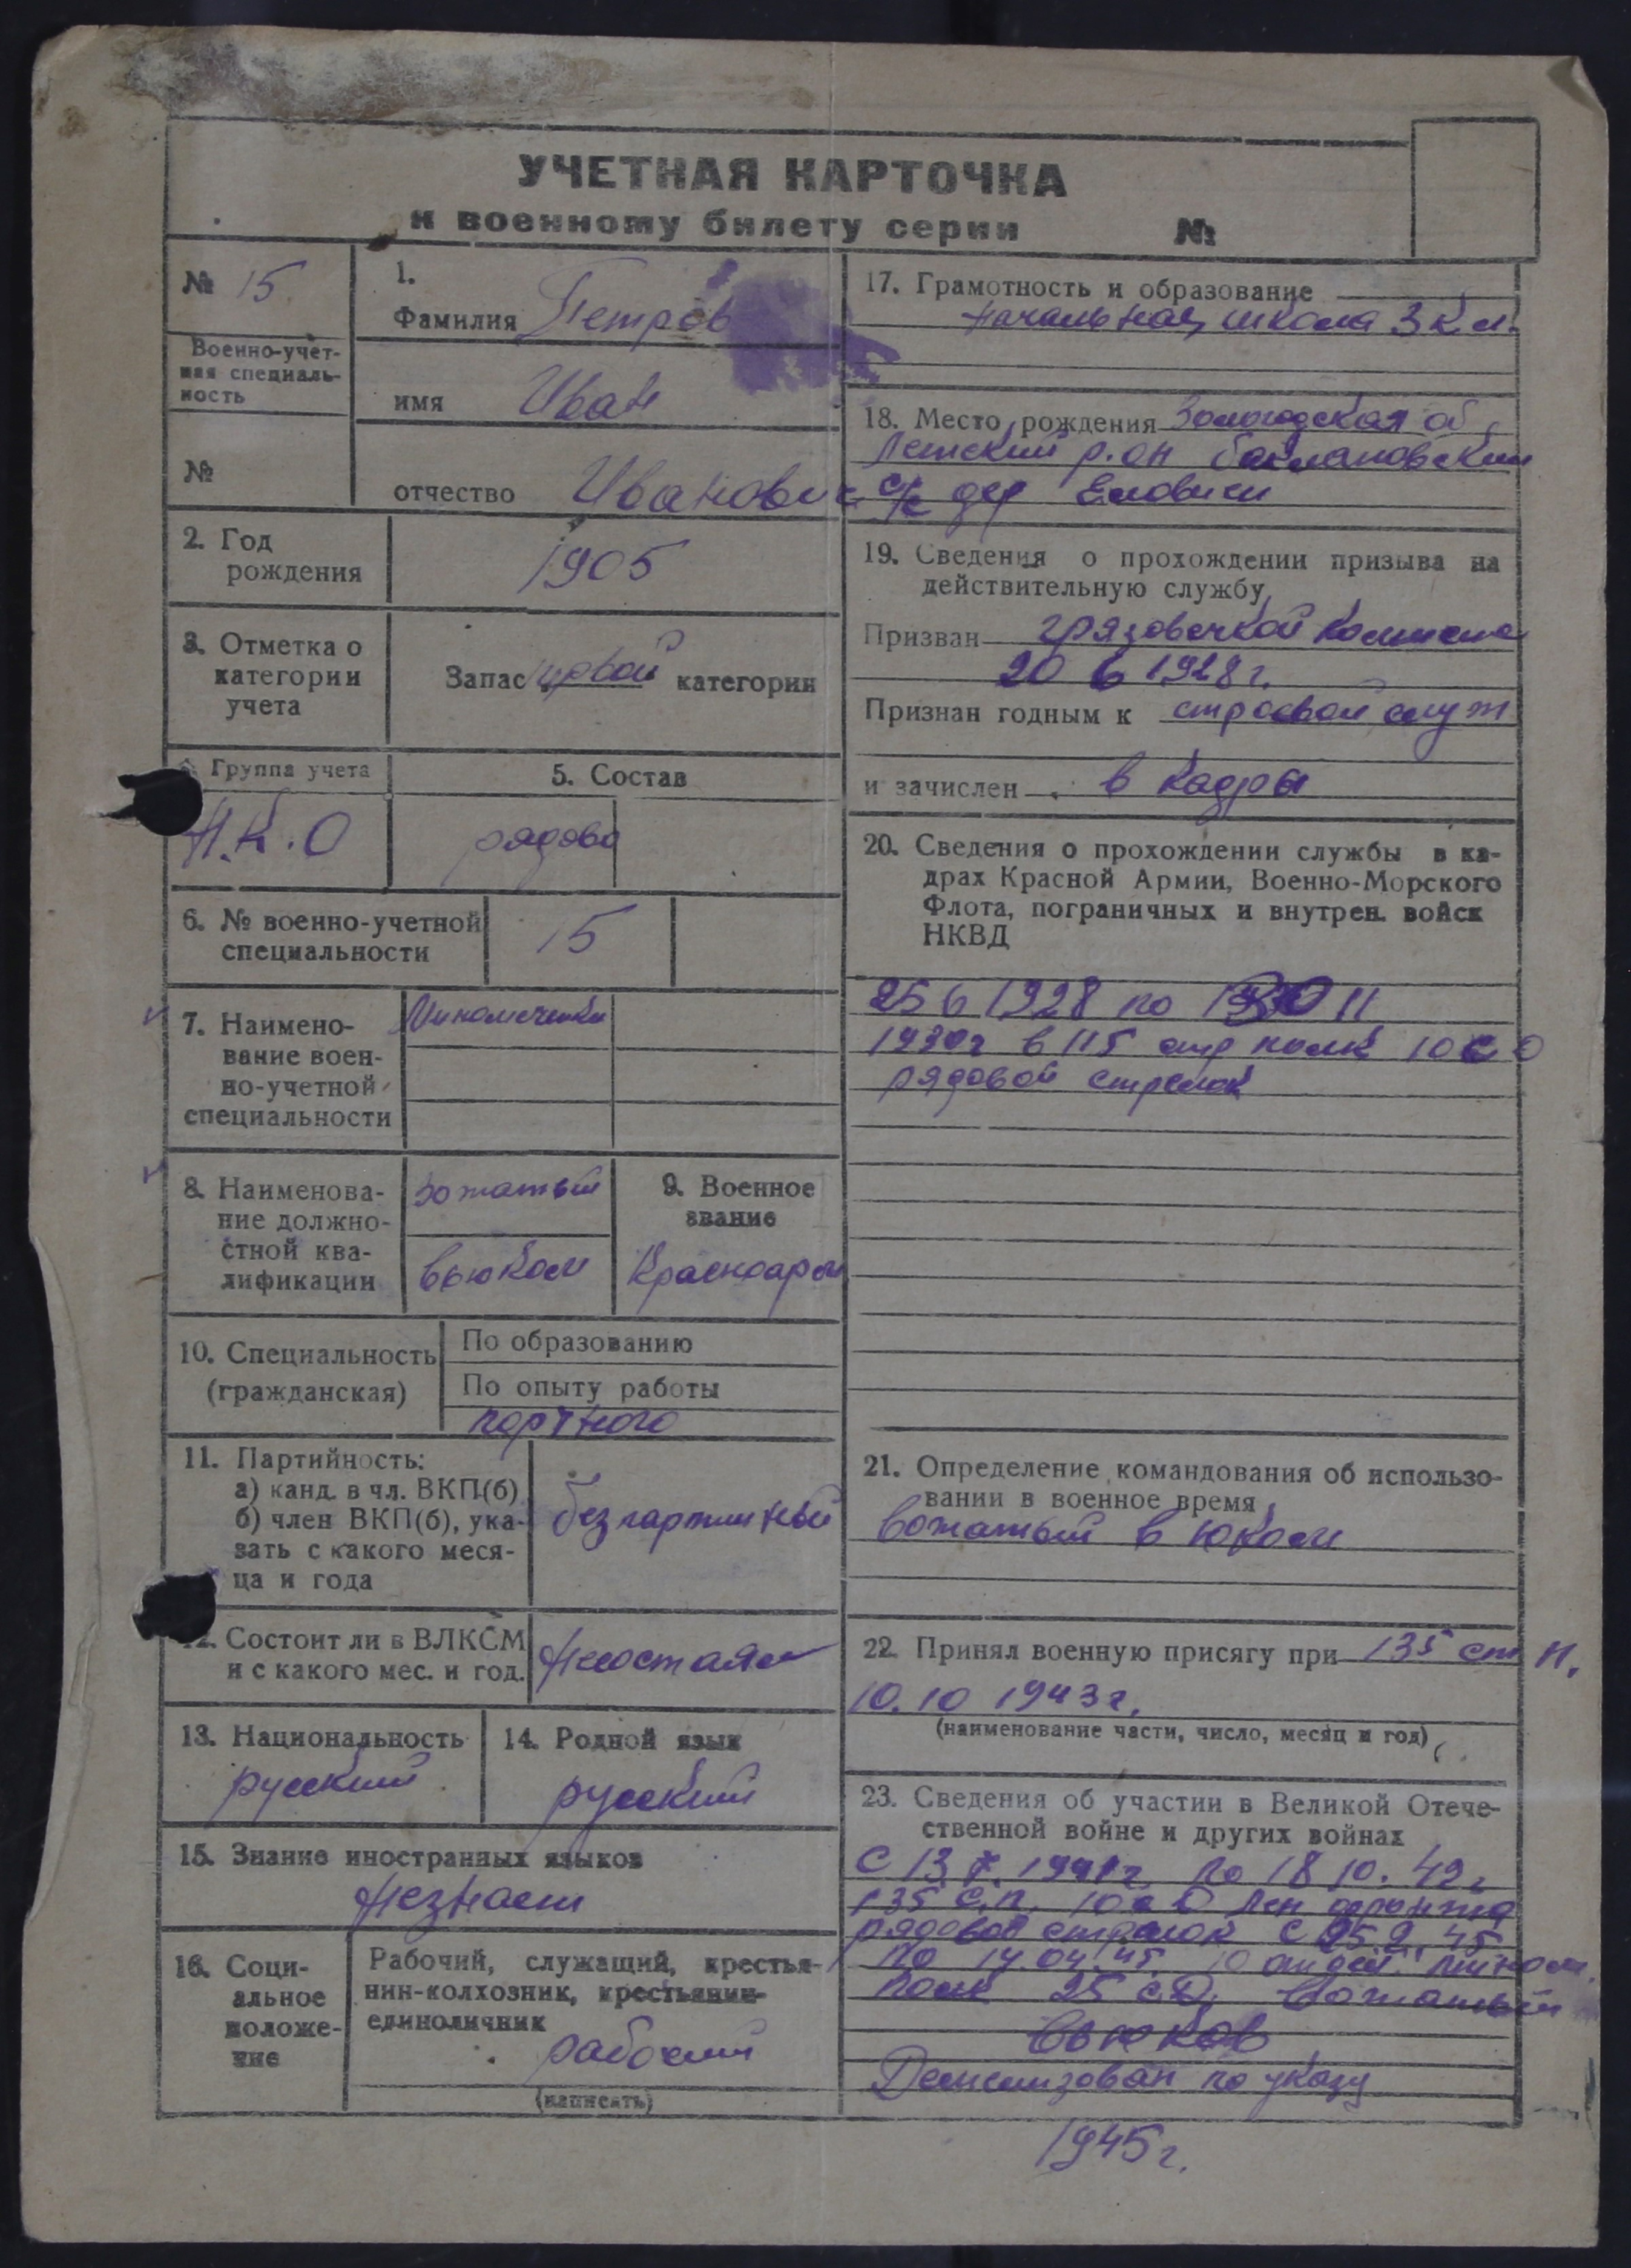 УЧЕТНАЯ КАРТОЧКА
к военному билету серии №
№ 15
Военно-учет-
ная специаль-
ность
№
1.
Фамилия Петров
имя Иван
отчество Иванович
2. Год
рождения
1905
3. Отметка о
категории
учета
Запас категории
Группа учета
Н.К.О
5. Состав
рядово
6. № военно-учетной
специальности
15
7. Наимено-
вание воен-
но-учетной
специальности
8. Наименова-
ние должно-
стной ква-
лификации
вожатый
вьюком
9. Военное
звание
Красноарм
10. Специальность
(гражданская)
По образованию
По опыту работы
портного
11. Партийность:
а) канд. в чл. ВКП(б)
б) член ВКП(б), ука-
зать с какого меся-
ца и года
безпартийный
12. Состоит ли в ВЛКСМ
и с какого мес. и год.
13. Национальность
русский
14. Родной язык
русский
15. Знание иностранных языков
незнает
16. Соци-
альное
положе-
ние
Рабочий, служащий, крестья-
нин-колхозник, крестьянин-
единоличник
рабочий
(написать)
17. Грамотность и образование
начальная школа 3 кл.
18. Место рождения Вологодская об
р.он
с/с дер
19. Сведения о прохождении призыва на
действительную службу
Призван
20 6 1928 г.
Признан годным к строевой служ
и зачислен в кадры
20. Сведения о прохождении службы в ка-
драх Красной Армии, Военно-Морского
Флота, пограничных и внутрен. войск
НКВД
25 6 1928 по 1930 11
1930г в 115 стр полк 10 с О
рядовой стрелок
21. Определение командования об использо-
вании в военное время
вожатый вьюком
22. Принял военную присягу при 135 ст п.
10.10 1943 г.
(наименование части, число, месяц и год)
23. Сведения об участии в Великой Отече-
ственной войне и других войнах
С 13 7. 1941г по 18 10. 42 г
135 с.п. 10 с Д Лен фронта
рядовой стрелок с 25 2. 45
по 14.04.45. 10 мином.
полк 25 с.Д. вожатый
вьюков
по указу
1945 г.